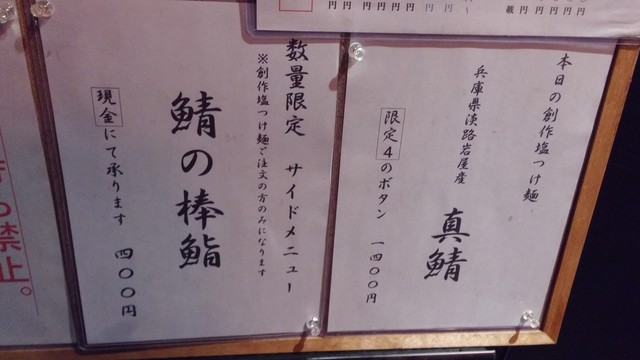 本日の創作塩つけ麺
兵庫県淡路岩屋産
真鯖
限定4のボタン 一四〇〇円
数量限定 サイドメニュー
※創作塩つけ麺ご注文の方のみになります
鯖の棒鮨
現金にて承ります 四〇〇円
禁止。
円 円 円 円 円 円 円 円 〜
載 円 円 円 円 円